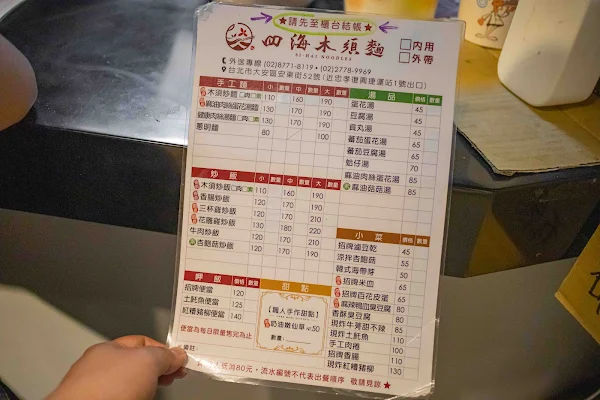 ★請先至櫃台結帳★
四海木須麵
SI HAI NOODLES
□內用
□外帶
外送專線 (02)8771-8119・(02)2778-9969
台北市大安區安東街52號 (近忠孝復興捷運站1號出口)
手工麵 小 數量 中 數量 大 數量
木須炒麵□肉□素 110 160 190
麻油肉絲蛋花湯麵 130 170 190
健康肉絲湯麵□肉□素 130 170 190
蔥明麵 80 100
炒飯 小 數量 中 數量 大 數量
木須炒飯□肉□素 110 160 190
香腸炒飯 120 170 210
三杯雞炒飯 120 170 210
花雕雞炒飯 130 180 220
牛肉炒飯 120 170 210
杏鮑菇炒飯 120 170 210
呷飯 價格 數量
招牌便當 120
土魠魚便當 125
紅糟豬柳便當 140
便當為每日限量售完為止
備註:
甜點
【職人手作甜點】
奶油嫩仙草 $50
數量:
湯品 價格 數量
蛋花湯 45
豆腐湯 45
貢丸湯 45
蕃茄蛋花湯 65
蕃茄豆腐湯 65
蛤仔湯 70
麻油肉絲蛋花湯 85
麻油菇菇湯 85
小菜 價格 數量
招牌滷豆乾 45
涼拌杏鮑菇 55
韓式海帶芽 50
招牌米血 65
招牌百花皮蛋 65
麻辣鴨血臭豆腐 80
香酥臭豆腐 80
現炸牛蒡甜不辣 85
現炸土魠魚 110
手工肉捲 100
招牌香腸 110
現炸紅糟豬柳 130
人低消80元,流水編號不代表出餐順序 敬請見諒★